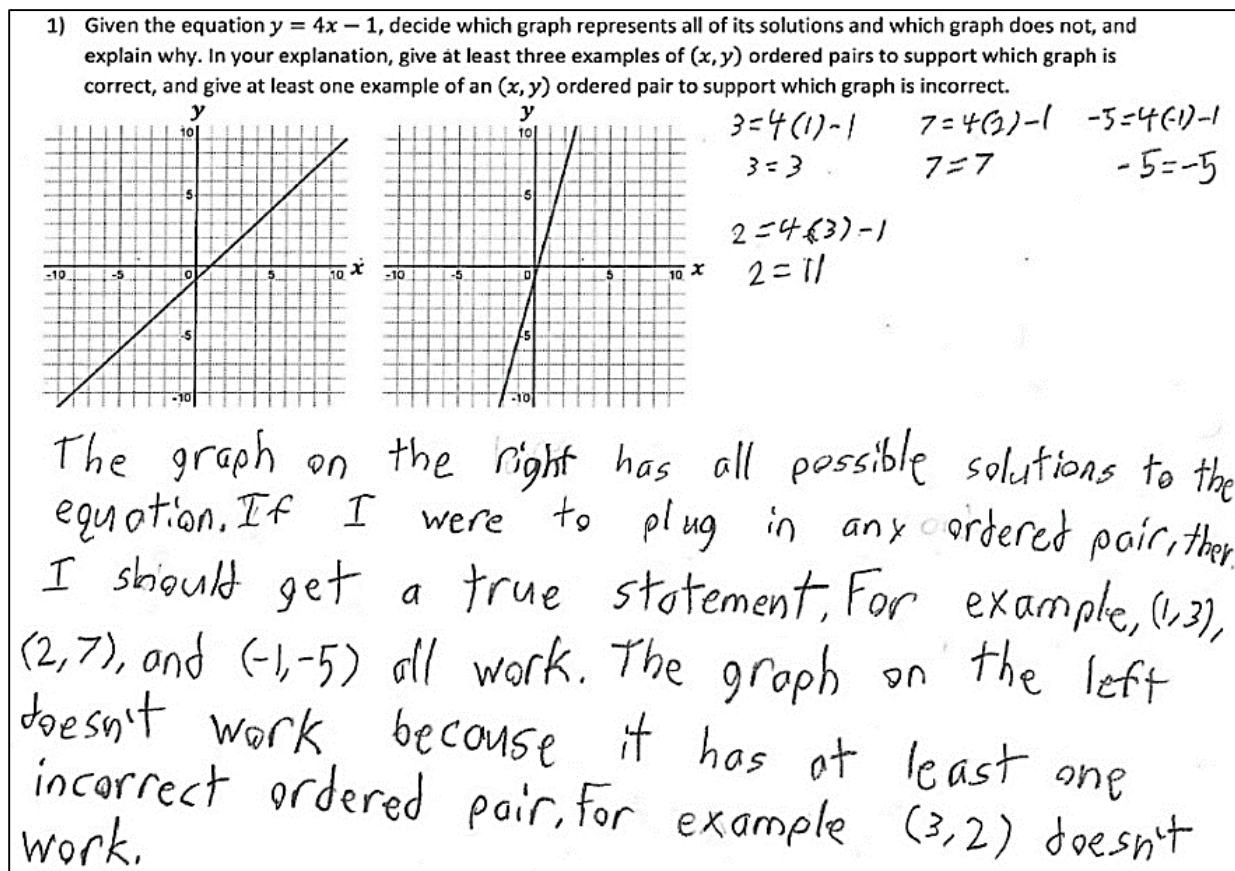 1) Given the equation y = 4x − 1, decide which graph represents all of its solutions and which graph does not, and
explain why. In your explanation, give at least three examples of (x, y) ordered pairs to support which graph is
correct, and give at least one example of an (x, y) ordered pair to support which graph is incorrect.
y
10
5
-10 -5 0 5 10 x
-5
-10
y
10
5
-10 -5 0 5 10 x
-5
-10
3=4(1)-1 7=4(2)-1 -5=4(-1)-1
3=3 7=7 -5=-5
2=4(3)-1
2=11
The graph on the right has all possible solutions to the
equation. If I were to plug in any ordered pair, then
I should get a true statement, For example, (1,3),
(2,7), and (-1,-5) all work. The graph on the left
doesn't work because it has at least one
incorrect ordered pair, For example (3,2) doesn't
work.